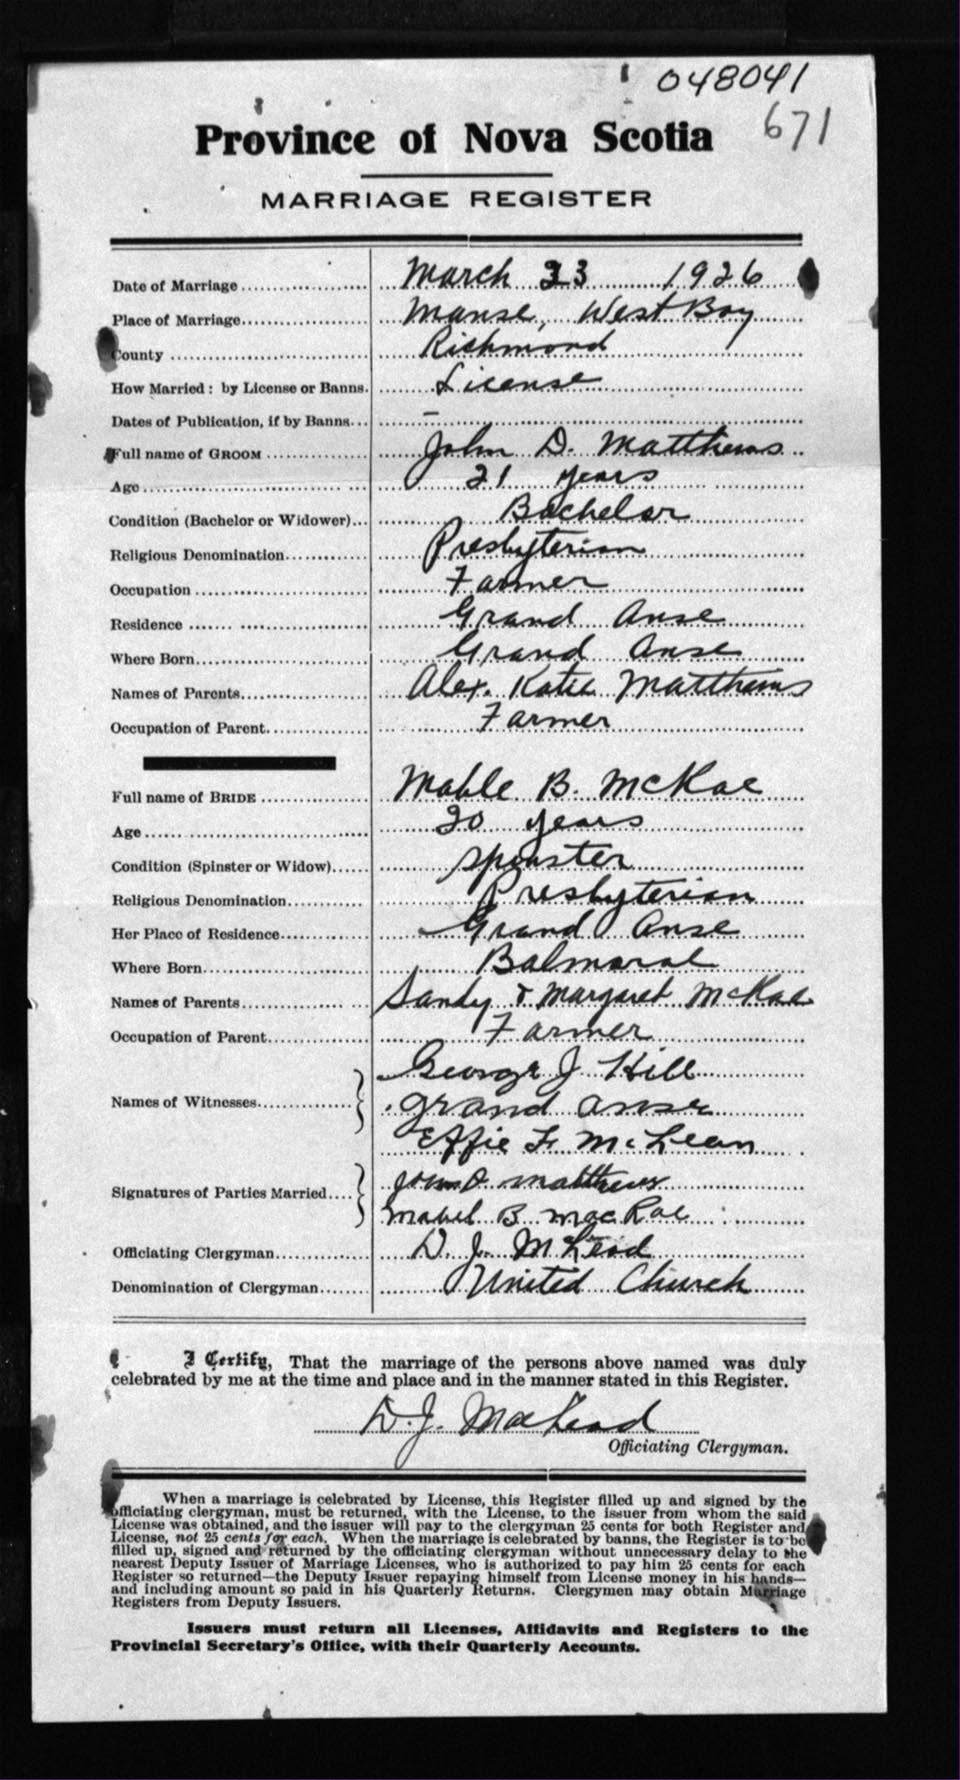 048041
671
Province of Nova Scotia
MARRIAGE REGISTER
Date of Marriage March 23 1926
Place of Marriage Manse, West Bay
County Richmond
How Married: by License or Banns. License
Dates of Publication, if by Banns —
Full name of GROOM John D. Matthews
Age 21 years
Condition (Bachelor or Widower) Bachelor
Religious Denomination Presbyterian
Occupation Farmer
Residence Grand Anse
Where Born Grand Anse
Names of Parents Alex. Katie Matthews
Occupation of Parent Farmer
Full name of BRIDE Mable B. McRae
Age 20 years
Condition (Spinster or Widow) Spinster
Religious Denomination Presbyterian
Her Place of Residence Grand Anse
Where Born Balmoral
Names of Parents Sandy & Margaret McRae
Occupation of Parent Farmer
George J Hill
Names of Witnesses Grand Anse
Effie F. McLean
John D Matthews
Signatures of Parties Married
Mabel B MacRae
Officiating Clergyman D. J. McLeod
Denomination of Clergyman United Church
I Certify, That the marriage of the persons above named was duly
celebrated by me at the time and place and in the manner stated in this Register.
D. J. MacLeod
Officiating Clergyman.
When a marriage is celebrated by License, this Register filled up and signed by the
officiating clergyman, must be returned, with the License, to the issuer from whom the said
License was obtained, and the issuer will pay to the clergyman 25 cents for both Register and
License, not 25 cents for each. When the marriage is celebrated by banns, the Register is to be
filled up, signed and returned by the officiating clergyman without unnecessary delay to the
nearest Deputy Issuer of Marriage Licenses, who is authorized to pay him 25 cents for each
Register so returned—the Deputy Issuer repaying himself from License money in his hands—
and including amount so paid in his Quarterly Returns. Clergymen may obtain Marriage
Registers from Deputy Issuers.
Issuers must return all Licenses, Affidavits and Registers to the
Provincial Secretary's Office, with their Quarterly Accounts.